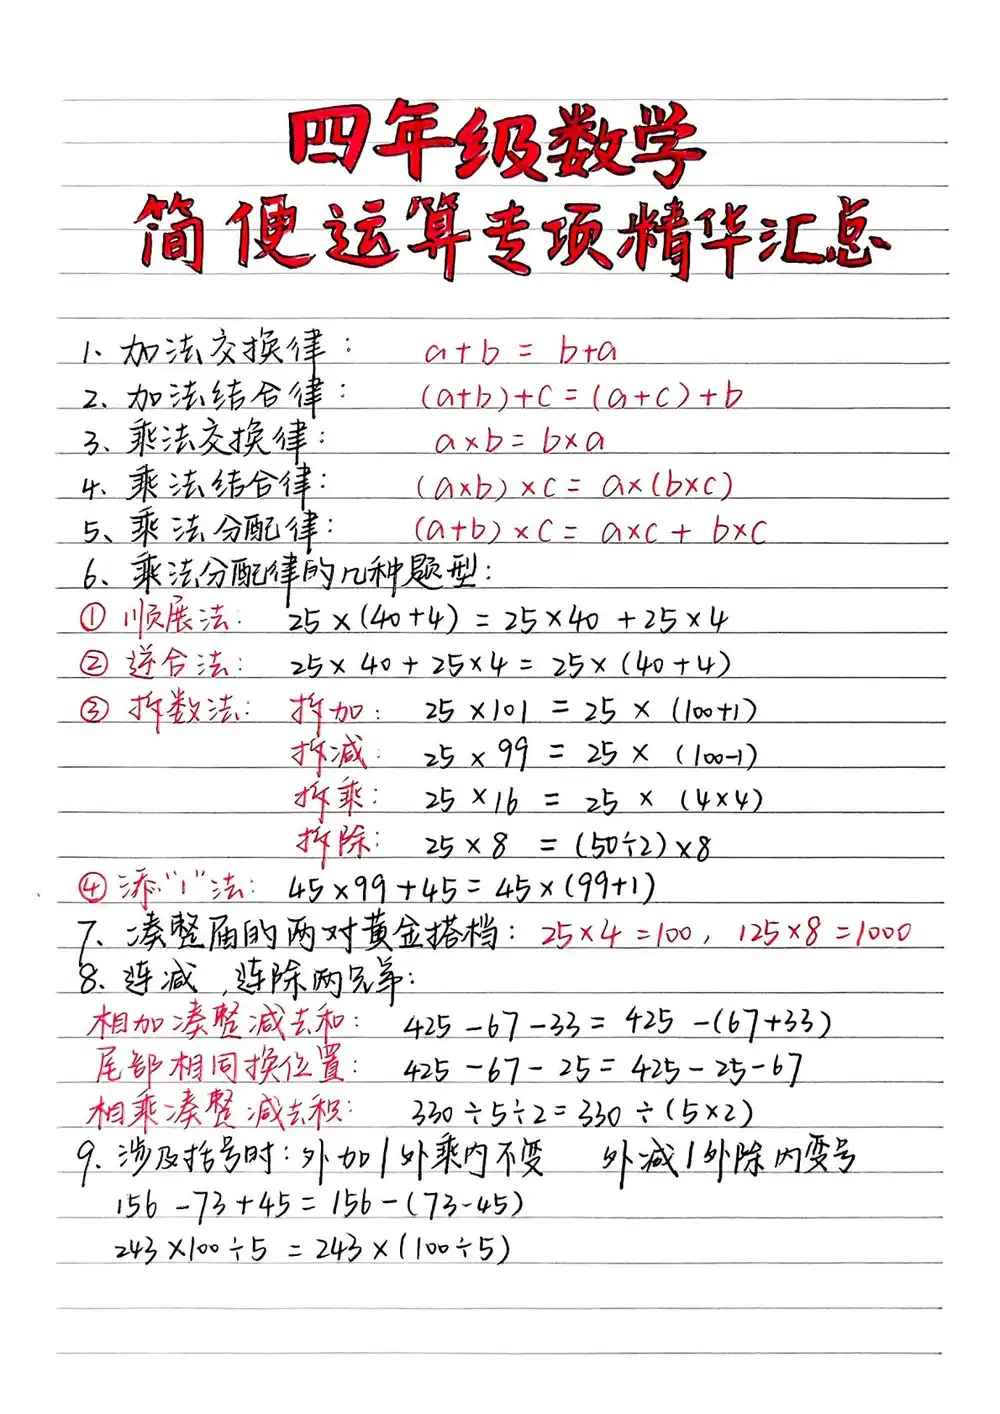 四年级数学
简便运算专项精华汇总
1、加法交换律: a+b = b+a
2、加法结合律: (a+b)+c=(a+c)+b
3、乘法交换律: a×b=b×a
4、乘法结合律: (a×b)×c= a×(b×c)
5、乘法分配律: (a+b)×c= a×c+ b×c
6、乘法分配律的几种题型:
① 顺展法: 25×(40+4)=25×40+25×4
② 逆合法: 25×40+25×4=25×(40+4)
③ 拆数法: 拆加: 25×101 =25 × (100+1)
拆减: 25×99 = 25 × (100-1)
拆乘: 25×16 = 25 × (4×4)
拆除: 25×8 =(50÷2)×8
④ 添“1”法: 45×99+45=45×(99+1)
7、凑整届的两对黄金搭档: 25×4=100, 125×8=1000
8、连减,连除两兄弟:
相加凑整减去和: 425-67-33= 425-(67+33)
尾部相同换位置: 425-67-25=425-25-67
相乘凑整减去积: 330÷5÷2=330÷(5×2)
9、涉及括号时:外加/外乘内不变 外减/外除内变号
156-73+45=156-(73-45)
243×100÷5 =243×(100÷5)